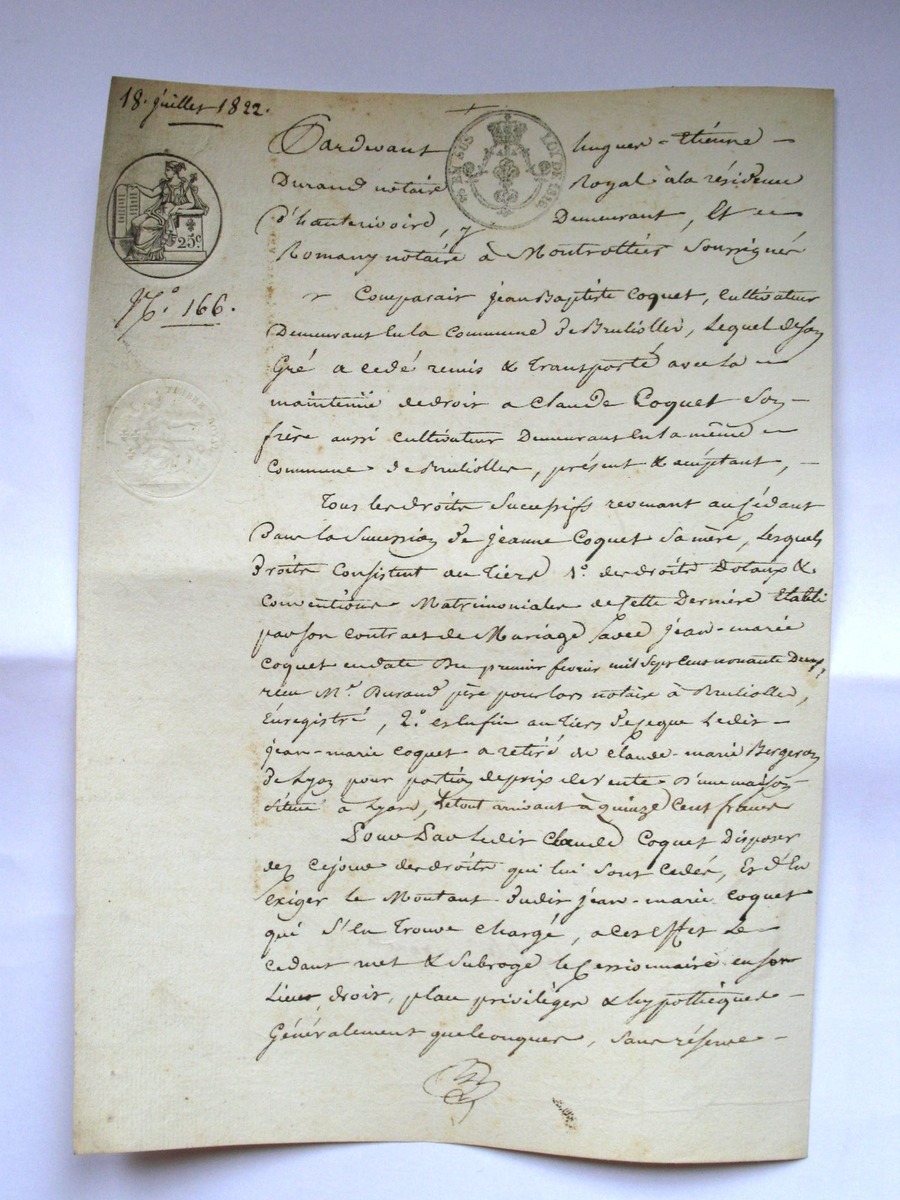 18. juillet 1822.
Pardevant hugues-Etienne
Durand notaire Royal à la résidence
d'hauterivoire, y Demeurant, Et
Romany notaire à Montrottier Soussignés
25c
N.o 166.
Comparait jean Baptiste Coquet, Cultivateur
Demeurant En la Commune de Brulliolles, Lequel de son
Gré a cédé remis & Transporté avec la
maintenue de droit a Claude Coquet Son
frère aussi Cultivateur Demeurant En la même
Commune de Brulliolles, présent & acceptant,
Tous les droits Successifs revenant au Cédant
Dans la Succession de jeanne Coquet Sa mère, Lesquels
Droits Consistent au Tiers 1.o des droits Dotaux &
Conventions Matrimoniales de Cette Dernière Etabli
par son contract de Mariage avec jean-marie
Coquet en date Du premier fevrier mil Sept Cent nonante Deux,
reçu M.e Durand père pour lors notaire à Brulliolles,
Enregistré, 2.o et Enfin au Tiers de ce que Ledit
jean-marie Coquet a retiré de Claude-marie Bergeron
de Lyon pour portion de prix de vente D'une maison
Située à Lyon, Le tout arrivant à quinze Cent francs
Pour Par Ledit Claude Coquet Disposer
dez ce jour des droits qui lui Sont Cédés, Et d'En
Exiger le Montant Dudit jean-marie Coquet
qui S'En Trouve chargé, a Cet Effet Le
cedant met & Subroge le Cessionnaire en son
Lieu, droit, place privilèges & hypothèques
Généralement quelconques, Sans réserve